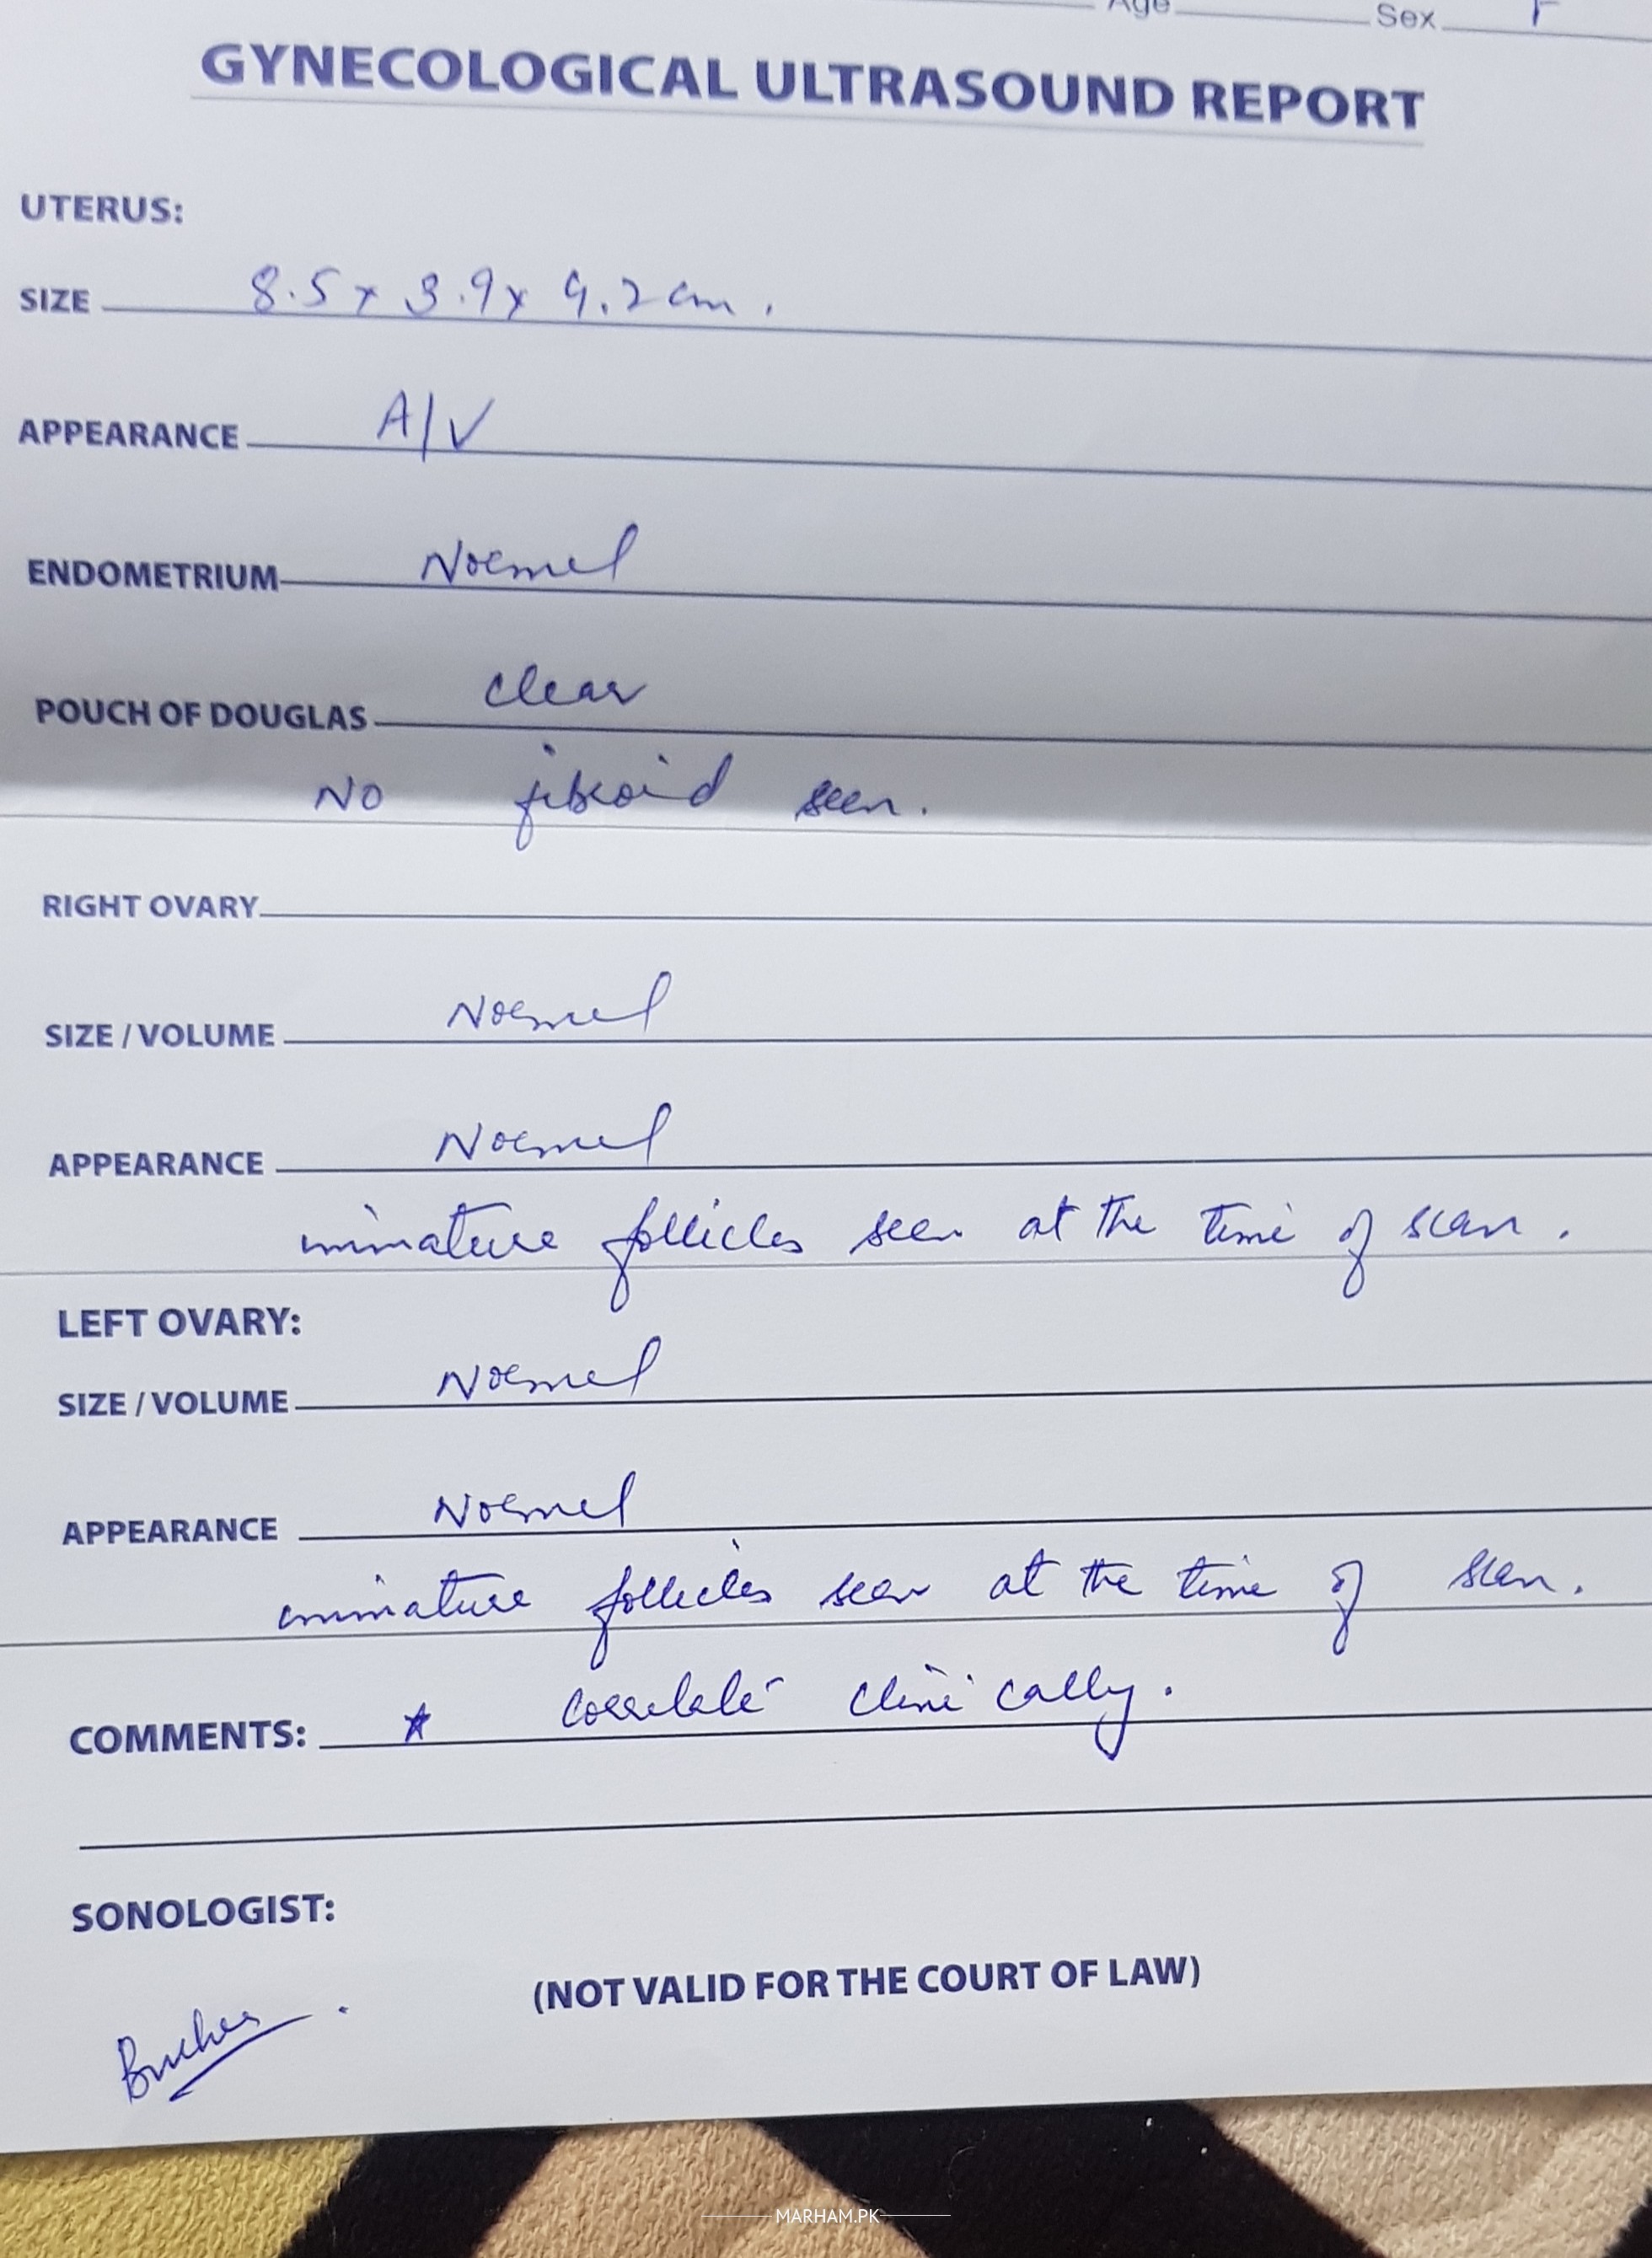 Age Sex F
GYNECOLOGICAL ULTRASOUND REPORT
UTERUS:
SIZE 8.5 x 3.9 x 4.2 cm.
APPEARANCE A/V
ENDOMETRIUM Normal
POUCH OF DOUGLAS clear
NO fibroid seen.
RIGHT OVARY
SIZE / VOLUME Normal
APPEARANCE Normal
immature follicles seen at the time of scan.
LEFT OVARY:
SIZE / VOLUME Normal
APPEARANCE Normal
immature follicles seen at the time of scan.
COMMENTS: * correlate clinically.
SONOLOGIST:
(NOT VALID FOR THE COURT OF LAW)
MARHAM.PK